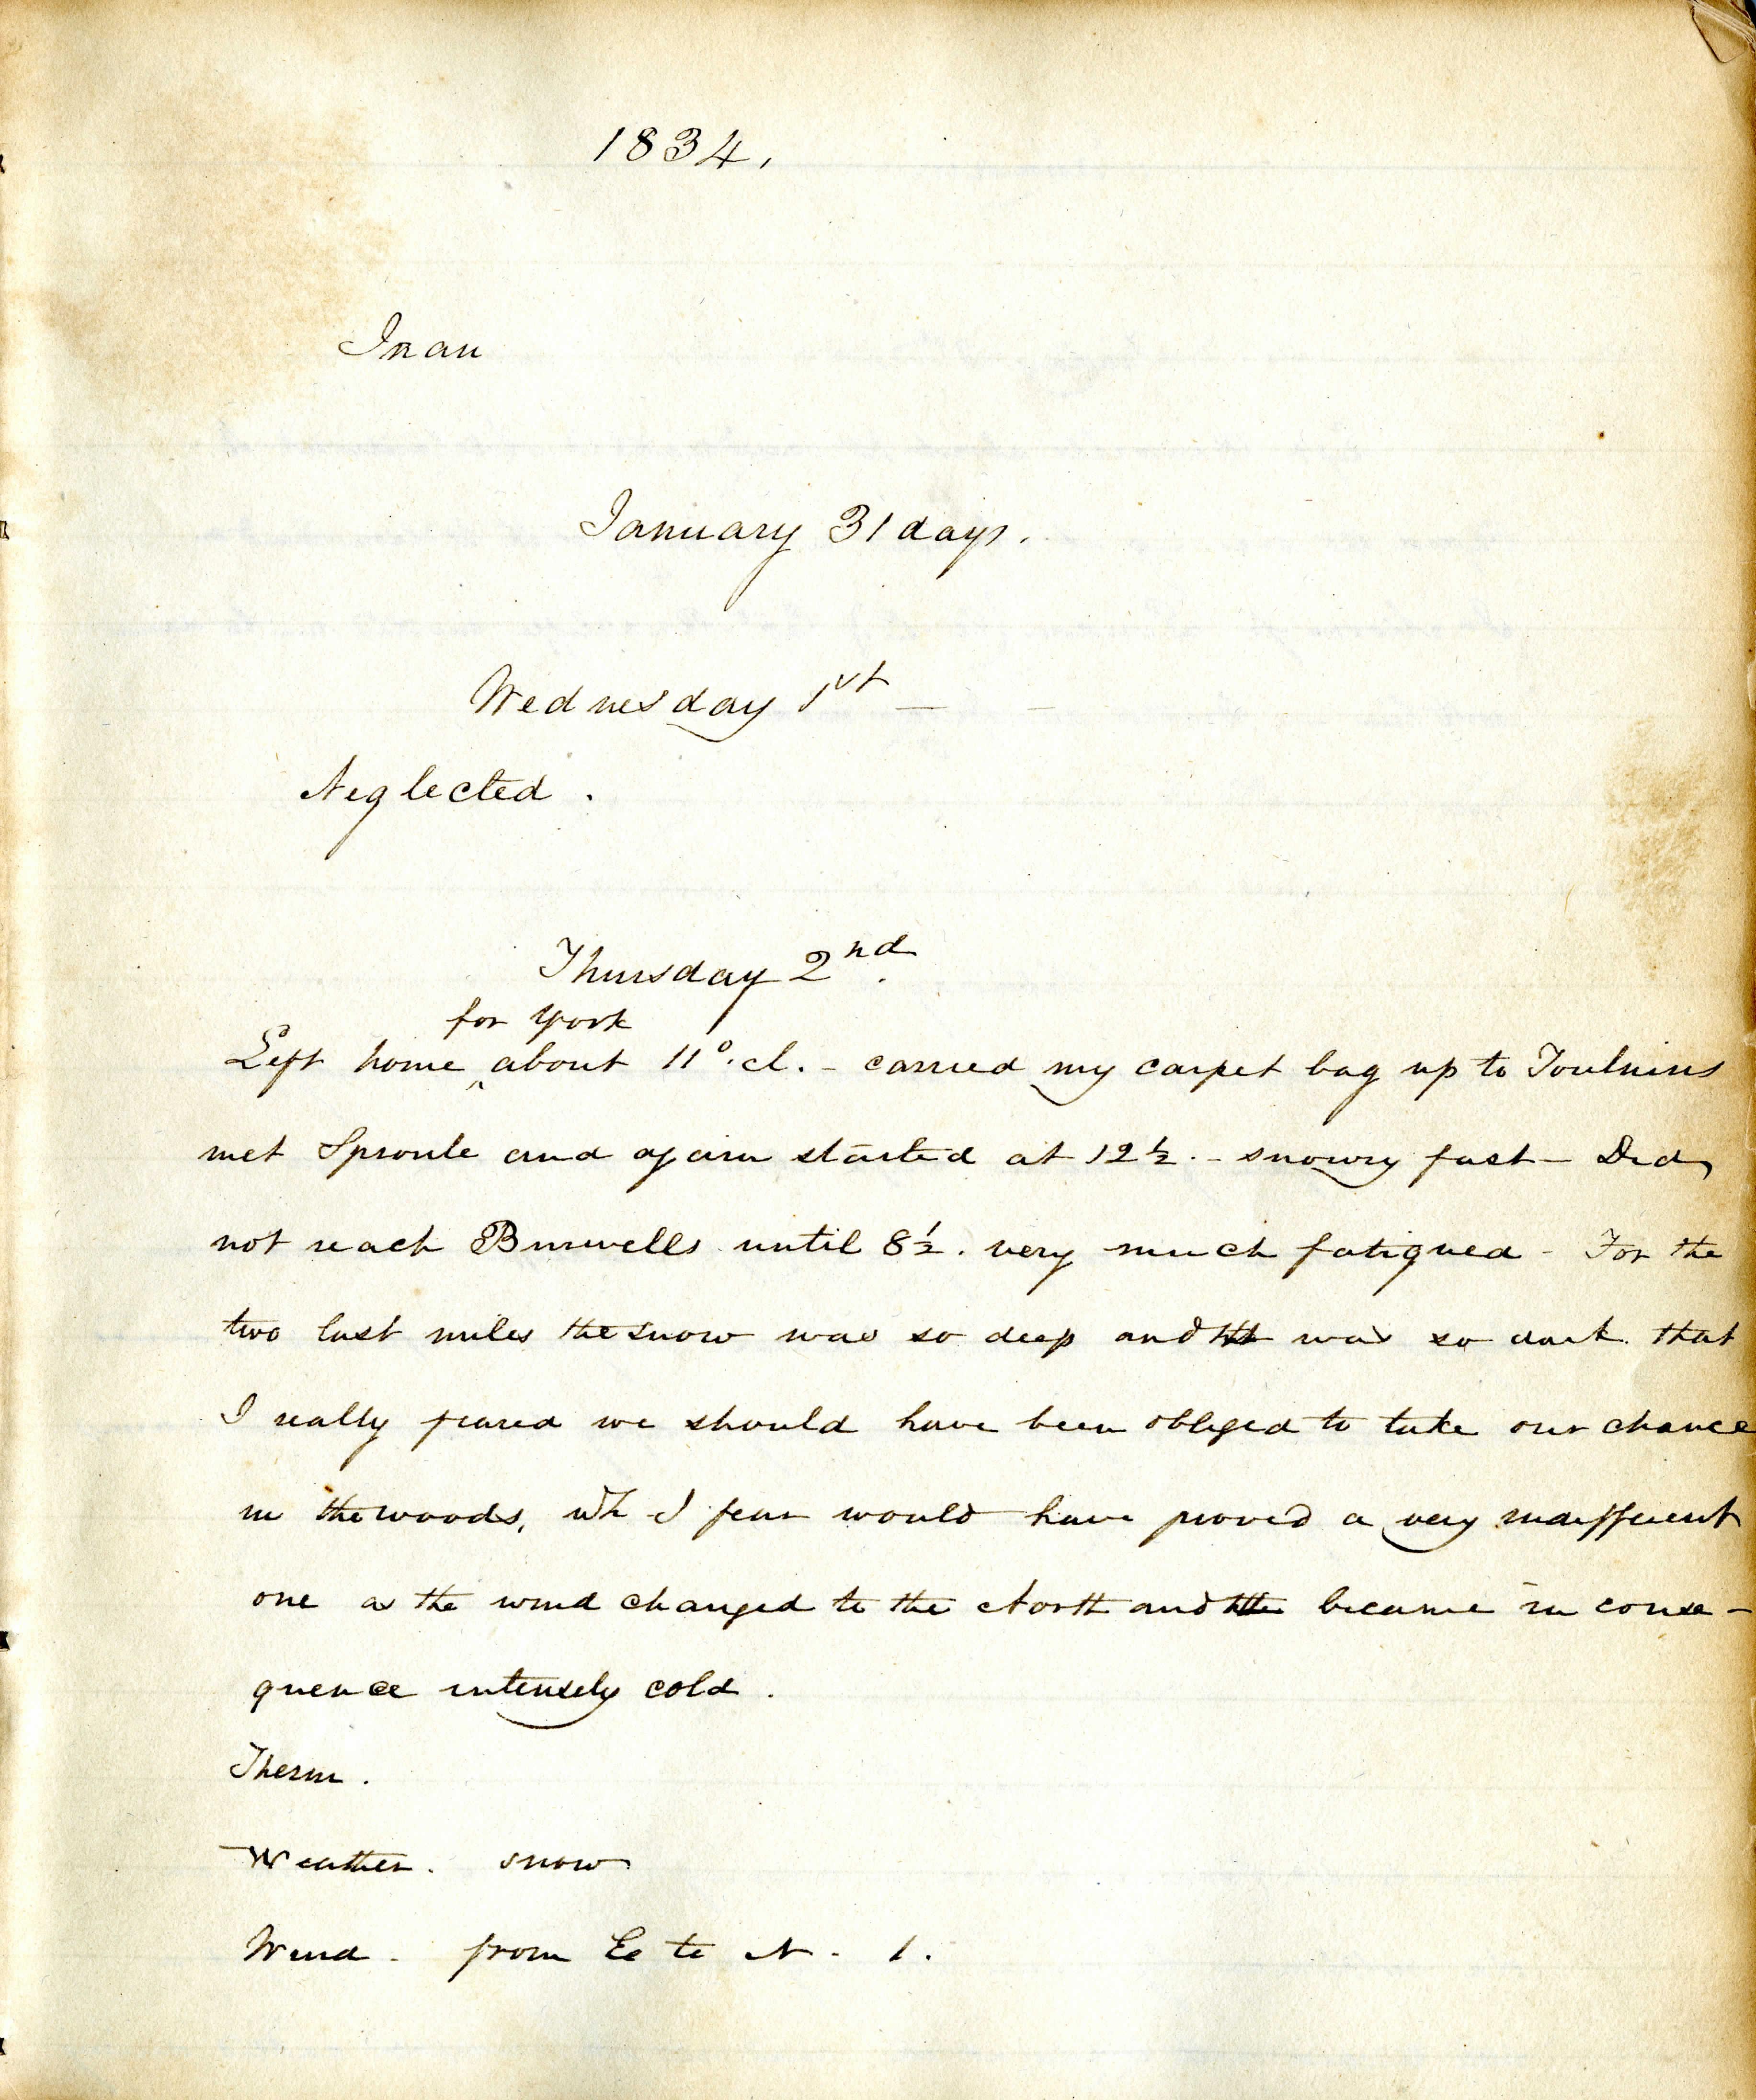 1834.
January 31 days.
Wednesday 1st —
Neglected.
Thursday 2nd.
for York
Left home ^ about 11 o.cl. - carried my carpet bag up to
met Sproule and again started at 12½. - snowy fast - Did
not reach Burwells until 8½. very much fatigued - For the
two last miles the snow was so deep and was so dark that
I really feared we should have been obliged to take our chance
in the woods, wh I fear would have proved a very indifferent
one as the wind changed to the North and became in conse-
quence intensely cold.
Therm.
Weather. snow
Wind - from E to N - 1.